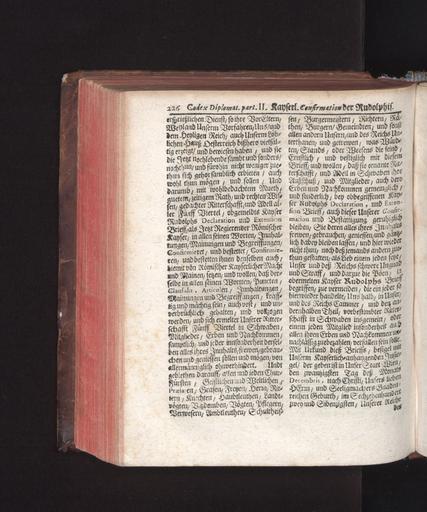 226 Codex Diplomat. part. II. Kayserl. Confirmation der Rudolphis.
ersprießlichen Dienst, so ihre Vor Eltern,
Weyland Unsern Vorfahren, Uns, und
dem Heyligen Reich, auch Unserm löb-
lichen Hauß Oesterreich bißher vielfäl-
tig erzeigt, und bewiesen haben, und sie
die Jetzt noch lebende samt und sonders,
noch thun, und fürohin nicht weniger zu
thun sich gehorsamblich erbieten, auch
wohl thun mögen, und sollen, Und
darumb, mit wohlbedachtem Mueth,
guetem, zeitigem Rath, und rechtem Wis-
sen, gedachter Ritterschafft, und Adel al-
ler Fünff Viertel, obgemeldts Kayser
Rudolphs Declaration und Extension
Brieff, als Jetzt Regierender Römischer
Kayser, in allen seinen Worten, Innhal-
tungen, Mainungen und Begreiffungen,
Confirmieret, und bestettet, Confirmie-
ren, und bestetten ihnen denselben auch
hiemit von Römischer Kayserlicher Macht
und Mainen, setzen, und wollen, daß der-
selbe in allen seinen Worten, Puncten,
Clausuln, Articuln, Innhaltungen,
Mainungen und Begreiffungen, kräff-
tig und mächtig seyn, auch vest, und un-
verbrüchlich gehalten, und vollzogen
werden, und sich ermelter Unserer Ritter-
schafft Fünff Viertel in Schwaben,
Mitglieder, Erben und Nachkommen,
samptlich, und jeder innsonderheit dersel-
ben alles ihres Innhalts freyen, gebrau-
chen und geniessen sollen und mögen, von
allermänniglich ohnverhindert. Und
gebiethen darauff, allen und jeden Chur-
Fürsten, Geistlichen und Weltlichen,
Prælaten, Grafen, Freyen, Herrn, Rit-
tern, Knechten, Haubtleuthen, Landt-
vögten, Vitzdomben, Vögten, Pflegern,
Verwesern, Ambtleuthen, Schultheis-
sen, Burgermeistern, Richtern, Rä-
then, Burgern, Gemeinden, und sonst
allen andern Unsern, und des Reichs Un-
terthanen, und getreuen, was Würd-
ten, Stands, oder Weesens die seind,
Ernstlich, und vestiglich mit diesem
Brieff, und wollen, daß sie genante Rit-
terschafft, und Adel in Schwaben ihre
Außschuß, und Mitglieder, auch dero
Erben und Nachkommen gemeiniglich,
und sonderlich, bey obbegriffenem Kay-
ser Rudolphs Declaration, und Exten-
sion Brieff, auch dieser Unserer Confir-
mation und Bestättigung geruhiglich
bleiben, Sie deren alles ihres Innhalts
freyen, gebrauchen, geniessen und gäntz-
lich dabey bleiben lassen, und hier wieder
nicht thun, noch deß jemands andern zu-
thun gestatten, als lieb einem jeden seye,
Unser und deß Reichs schwere Ungnad
und Straff, und darzue die Poen, in
obermelten Kayser Rudolphs Brieff
begriffen, zue vermeiden, die ein jeder so
hierwieder handelte, Uns halb, in Unser,
und des Reichs Cammer, und den an-
dern halben Theil, vorbestimbter Ritter-
schafft in Schwaben insgemein, oder
einem jeden Mitglied insonderheit und
allen ihren Erben und Nachkommen un-
nachläßig zuebezahlen, verfallen seyn solle.
Mit Urkund dieß Brieffs, besiegelt mit
Unserm Kayserlichen anhangendem Insie-
gel, der geben ist in Unser Statt Wien,
den zwaintzigsten Tag deß Monaths
Decembris, nach Christi, Unsers lieben
HErrn, und Seeligmachers Gnaden-
reichen Geburth, im Sechzehenhundert
zwey und Sibenzigsten, Unserer Reiche
des